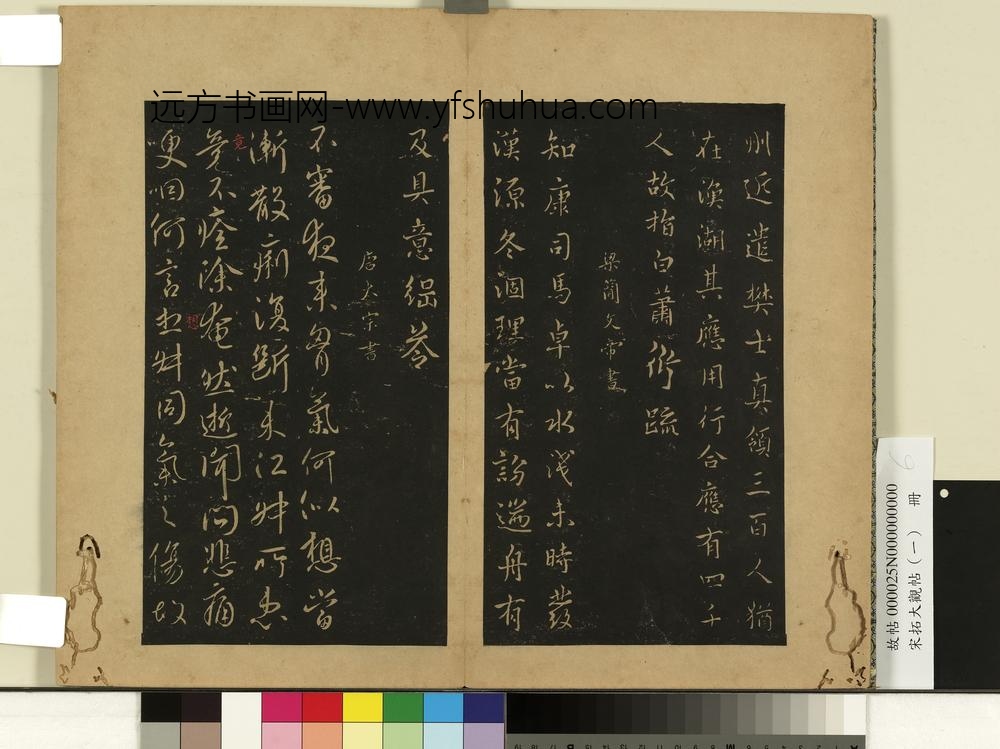 远方书画网-www.yfshuhua.com
州近遣樊士真領三百人猶
在漢湖其應用行合應有四千
人故指白蕭衍疏
梁簡文帝書
知康司馬卓以水淺未時發
漢源冬涸理當有訪遄舟有
及具意綜答
唐太宗書
不審夜來胷氣何似想當
漸散痢復斷未江妹所患
竟
竟不痊除奄然逝聞問悲痛
想
哽咽何言想妹同氣之傷故
故帖000025N000000000
宋拓大觀帖(一) 冊
6